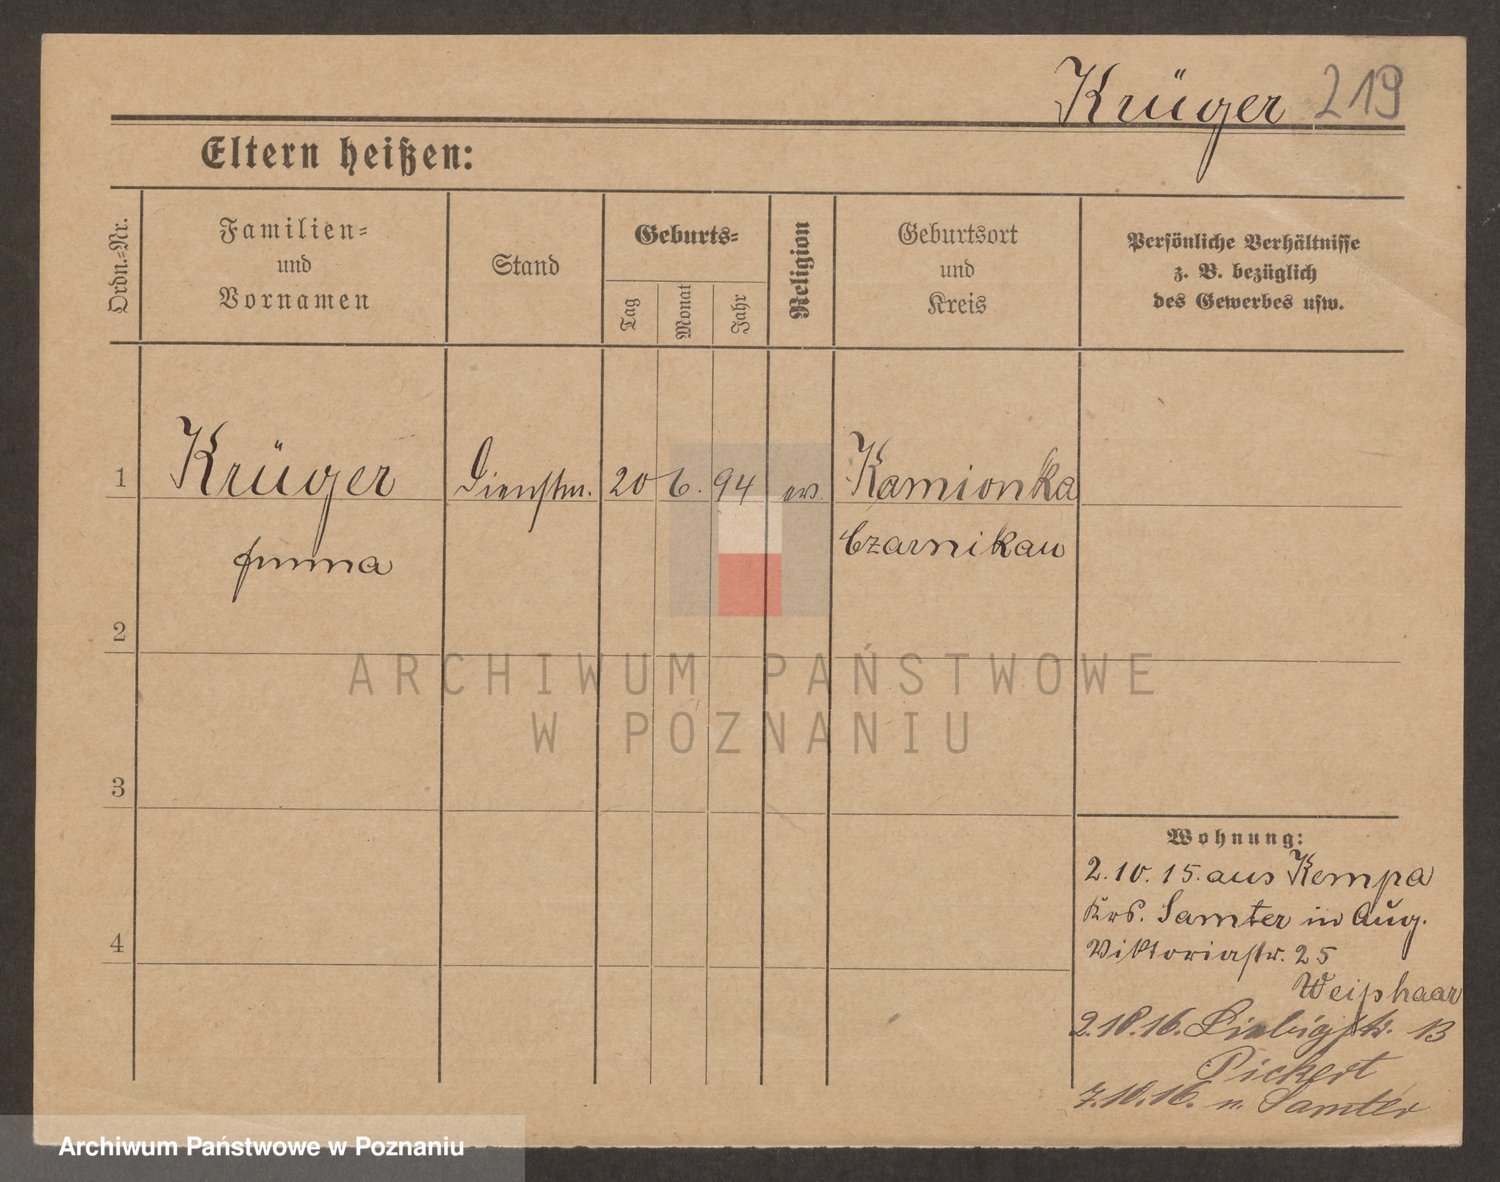 Krüger 219
Eltern heißen:
Ordn.-Nr.
Familien-
und
Vornamen
Stand
Geburts-
Tag
Monat
Jahr
Religion
Geburtsort
und
Kreis
Persönliche Verhältnisse
z. B. bezüglich
des Gewerbes usw.
1 Krüger Dienstm. 20 6. 94 ev. Kamionka
Emma Czarnikau
2
3
4
ARCHIWUM PAŃSTWOWE
W POZNANIU
Wohnung:
2.10.15. aus Kempa
Krs. Samter in Aug.
Viktoriastr. 25
Weiphaar
2.10.16. Liebigstr. 13
Pickert
7.10.16. n. Samter
Archiwum Państwowe w Poznaniu